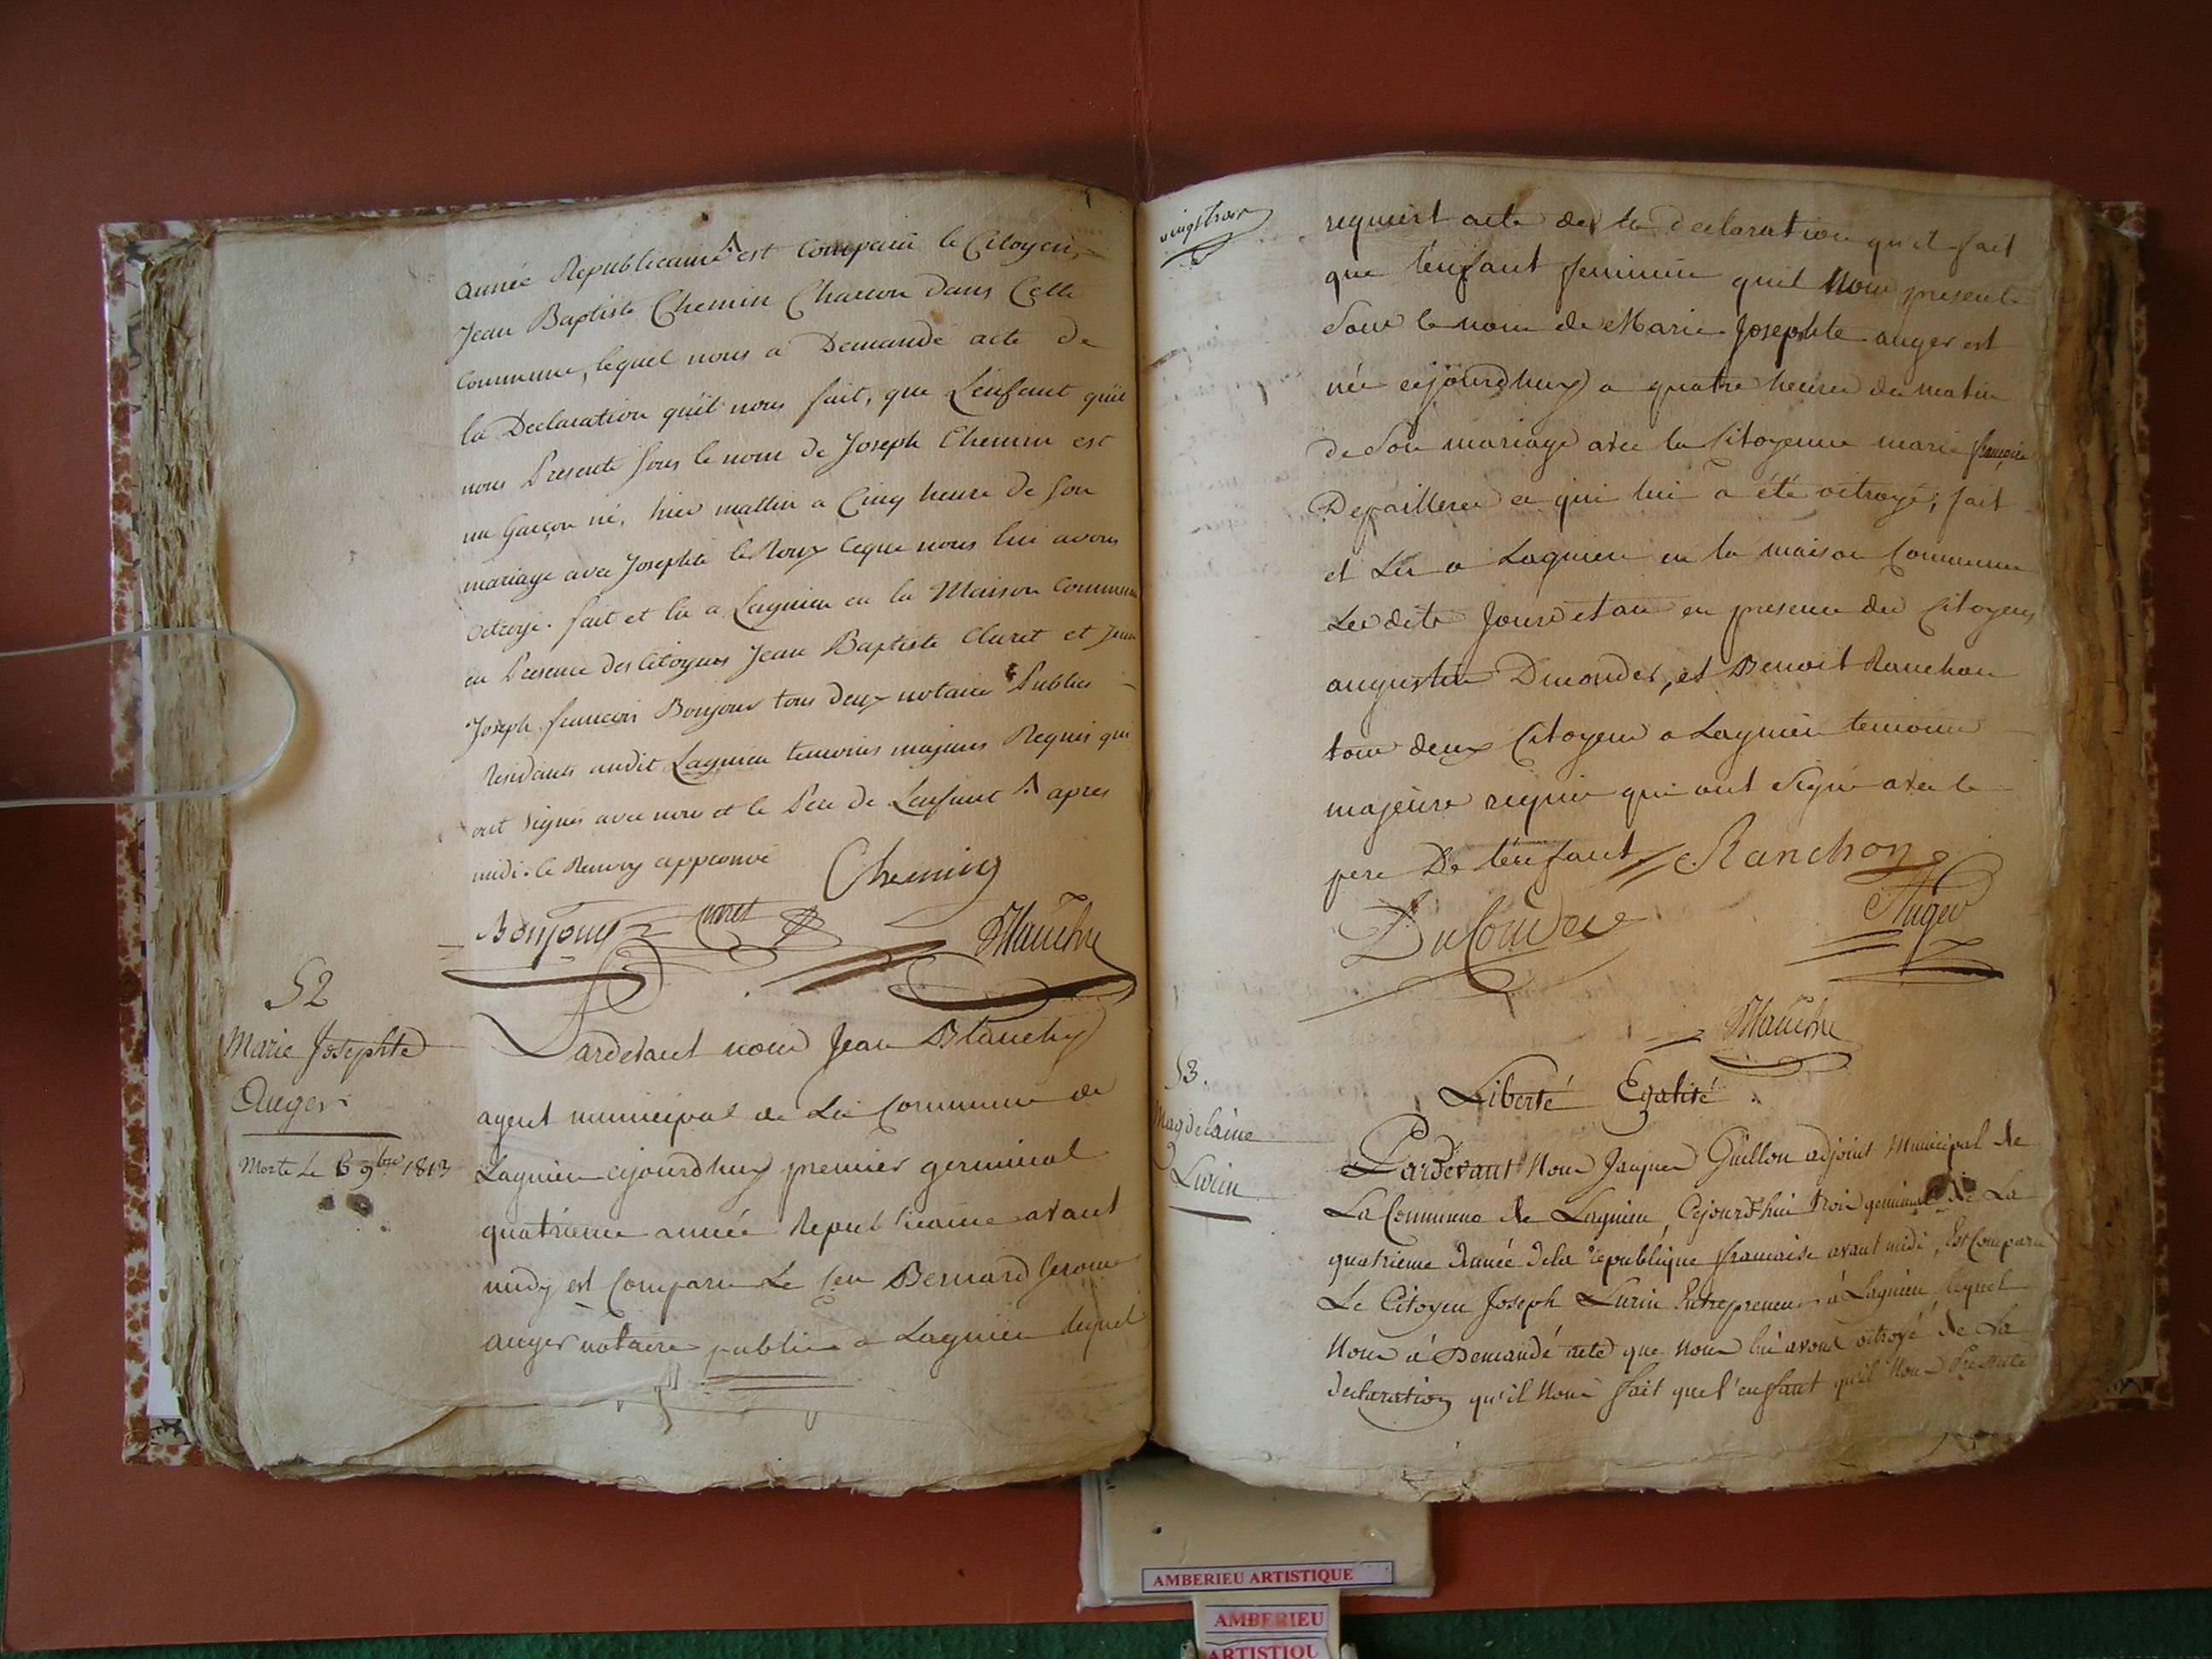 année Republicaine est comparu le Citoyen,
Jean Baptiste Chemin Charron dans Cette
Commune, lequel nous a Demandé acte de
la Declaration qu'il nous fait, que L'enfant qu'il
nous Presente sous le nom de Joseph Chemin est
un Garçon né, hier mattin a Cinq heure de son
mariage avec Josephte le Roux ceque nous lui avons
octroyé. fait et lu a Lagnieu en la Maison Commune
en Presence des Citoyens Jean Baptiste Claret et Jean
Joseph francois Bonjour tous deux notaire Publics
Residants audit Lagnieu temoins majeurs Requis qui
ont signés avec nous et le Pere de L'enfant apres
midi. le Renvoy approuvé Chemin
Bonjour Claret Blanchy
52
Marie Josephte
Auger
Morte le 6 9bre 1813
Pardevant nous Jean Blanchy
agent municipal de La Commune de
Lagnieu cejourdhuy premier germinal
quatrieme année Republicaine avant
midy est Comparu Le Cen Bernard Jerome
auger notaire public a Lagnieu lequel
vingt trois
requiert acte de la declaration qu'il fait
que l'enfant feminin quil Nous presente
Sous le nom de Marie Josephte auger est
née cejourdhuy a quatre heures du matin
de Son mariage avec la Citoyenne marie françoise
Depaillere ce qui lui a été octroyé; fait
et Lu a Lagnieu en la maison Commune
Lesdits Jour et an en presence des Citoyens
augustin Ducoudes, et Benoit Ranchon
tous deux Citoyens a Lagnieu temoins
majeurs requis qui ont Signé avec le
pere De l'enfant // Ranchon
Auger
Blanchy
53.
Magdelaine
Lurin
Liberté Egalité.
Pardevant Nous Jaques Guillon adjoint Municipal de
La Commune de Lagnieu, Cejourd'hui trois germinal de La
quatrieme Année de la république francaise avant midi, Est Comparu
Le Citoyen Joseph Lurin Entrepreneur à Lagnieu, lequel
Nous à Demandé acte que Nous lui avons octroyé de La
declaration qu'il Nous fait que l'enfant qu'il Nous Presente
AMBERIEU ARTISTIQUE
AMBERIEU
ARTISTIQU